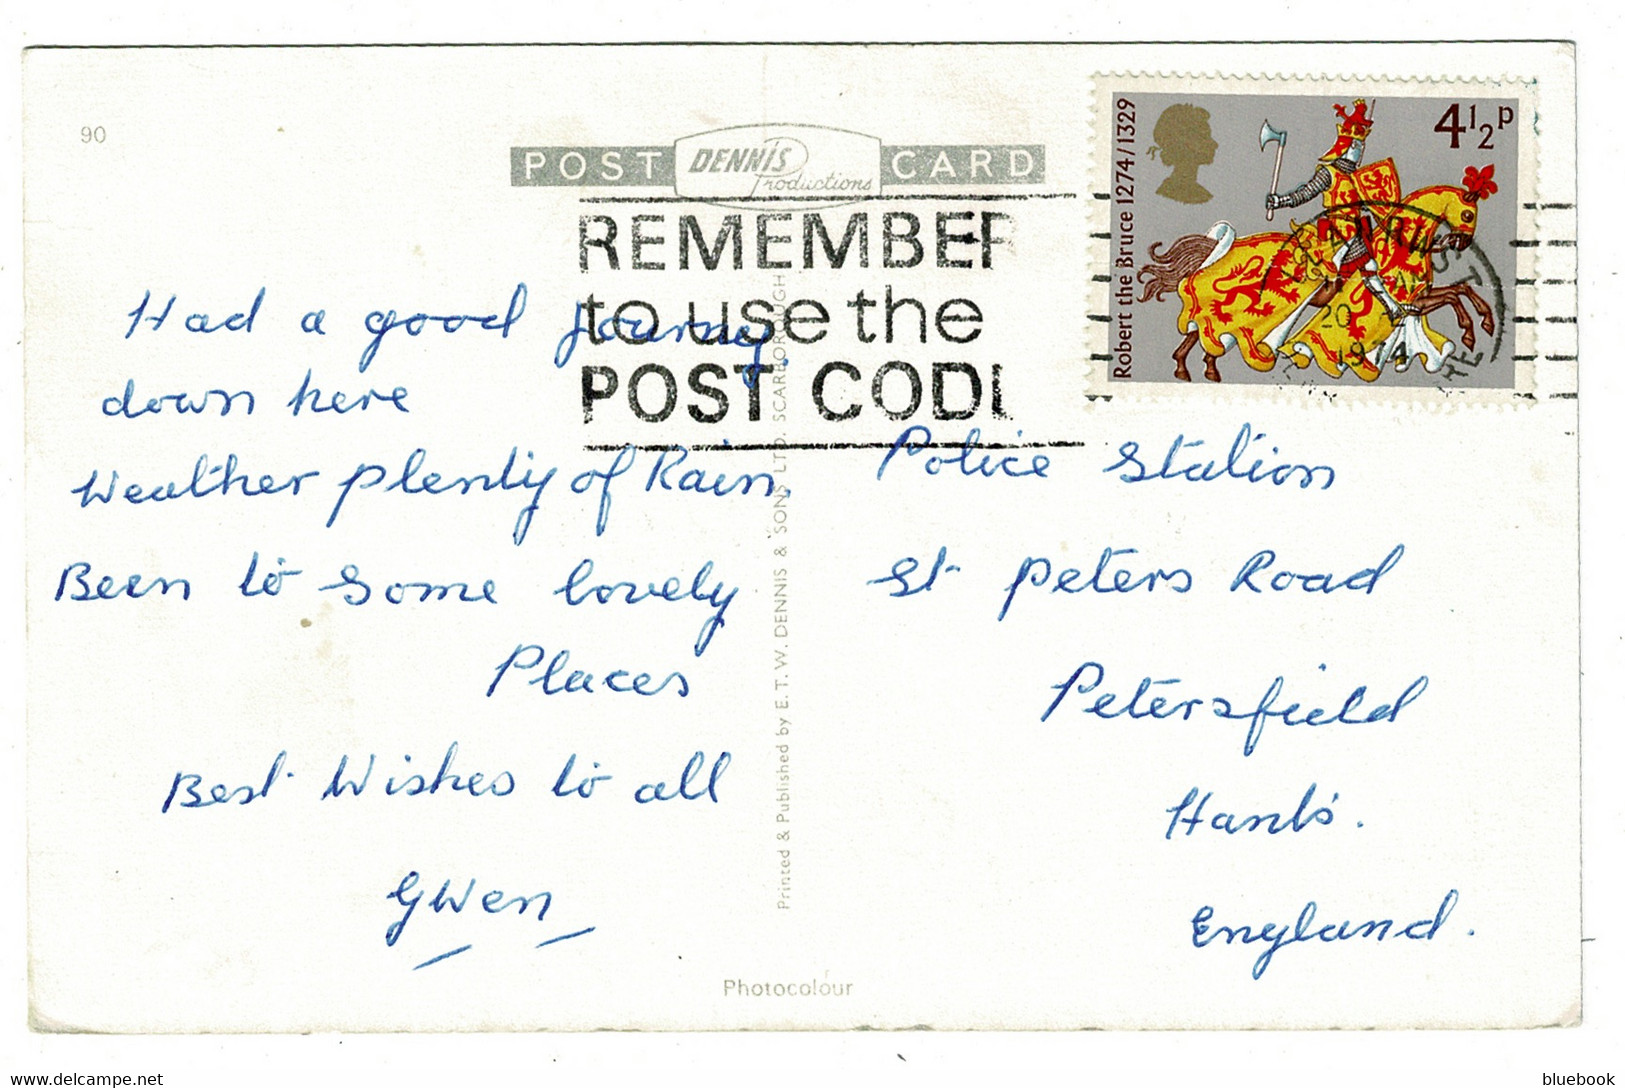 90
POST DENNIS Productions CARD
REMEMBER
to use the
POST CODE
Robert the Bruce 1274/1329
4½P
LLANRWST
20
1974
Had a good journey
down here
Weather plenty of Rain.
Been to some lovely
Places
Best Wishes to all
Gwen
Printed & Published by E. T. W. DENNIS & SONS LTD. SCARBOROUGH
Police Station
St. Peters Road
Petersfield
Hants.
England.
Photocolour
delcampe.net
bluebook